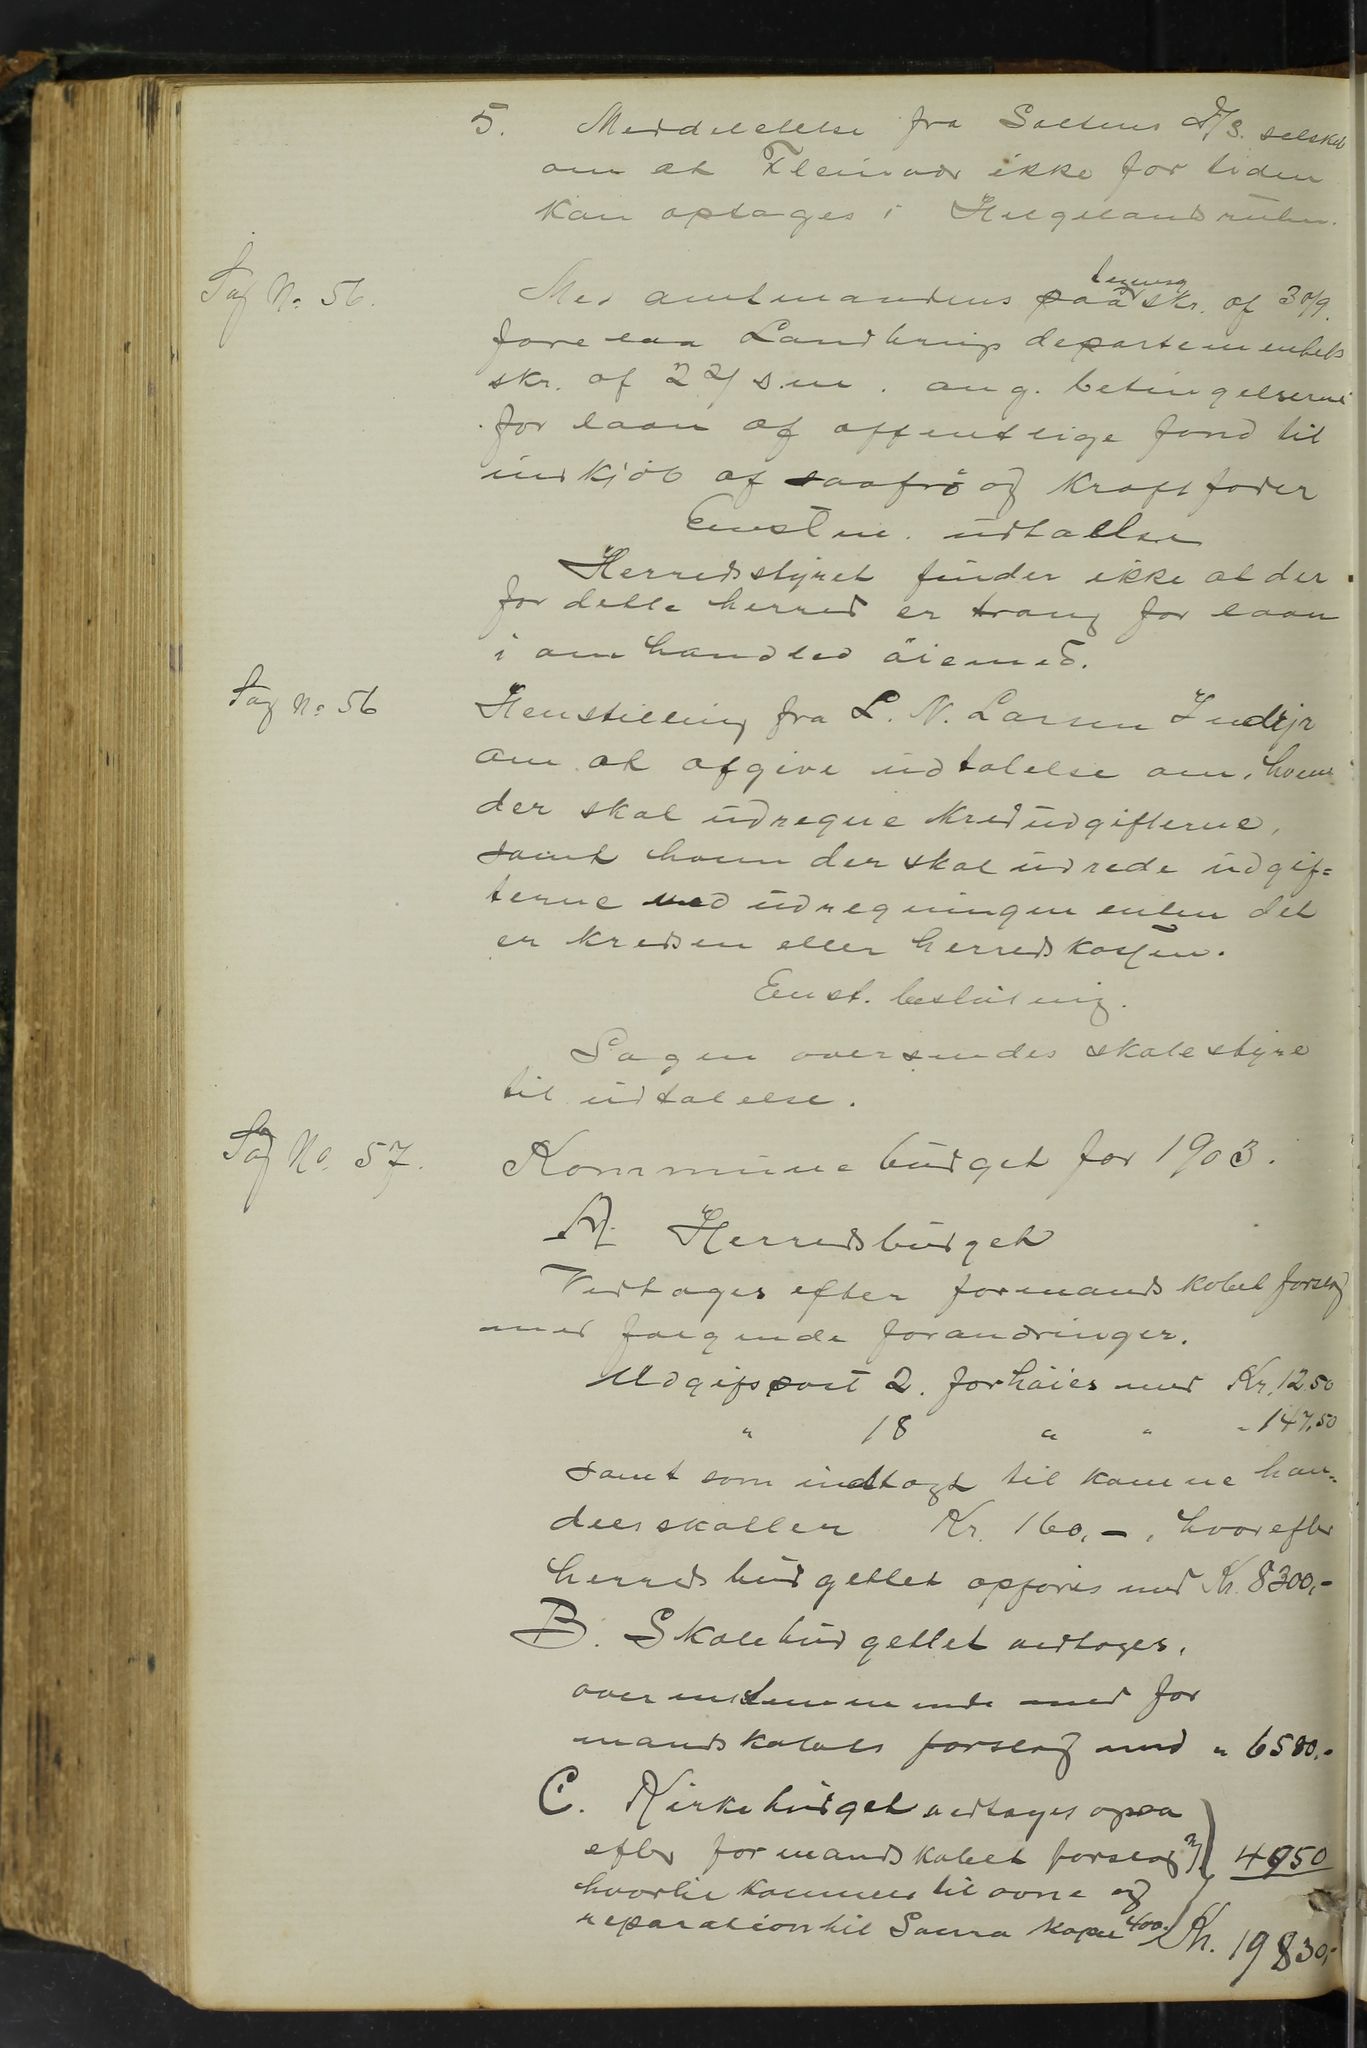 5. Meddelelse fra Saltens D/S. selskab
om at Fleinvær ikke for tiden
kan optages i Helgelandsruten.
Sag No 56.
Med amtmandens paategning skr. af 30/9.
forelaa Landbrugsdepartementets
skr. af 22/ s.m. ang. betingelserne
for laan af offentlige fond til
indkjøb af saafrö og kraftfoder
Enstm. udtallse
Herredsstyret finder ikke at der
for dette herred er trang for laan
i omhandled öiemed.
Sag No 56
Henstilling fra L. N. Larsen Indyr
om at afgive udtalelse om, hvem
der skal udregne kredsudgifterne,
samt hvem der skal udrede udgif=
terne med udregningen enten det
er kredsen eller herredskassen.
Enst. beslutning.
Sagen oversendes skolestyre
til udtalelse.
Sag No. 57.
Kommunebudget for 1903.
A. Herredsbudget
Vedtages efter formandskabet forslag
med følgende forandringer.
Udgifspost 2. forhöies med Kr. 12.50
" 18 " " " 147.50
samt som indtægt til komne han=
delsskatten Kr. 160,-, hvorefter
herredsbudgettet opføres med Kr. 8300,-
B. Skolebudgettet vedtages,
overensstemmende med for
mandskabets forslag med " 6580.-
C. Kirkebudget vedtages ogsaa
efter formandskabet forslag
hvortil kommer til ovne og
reparation til Sørra kapel 400.-
4950
Kr. 19830,-